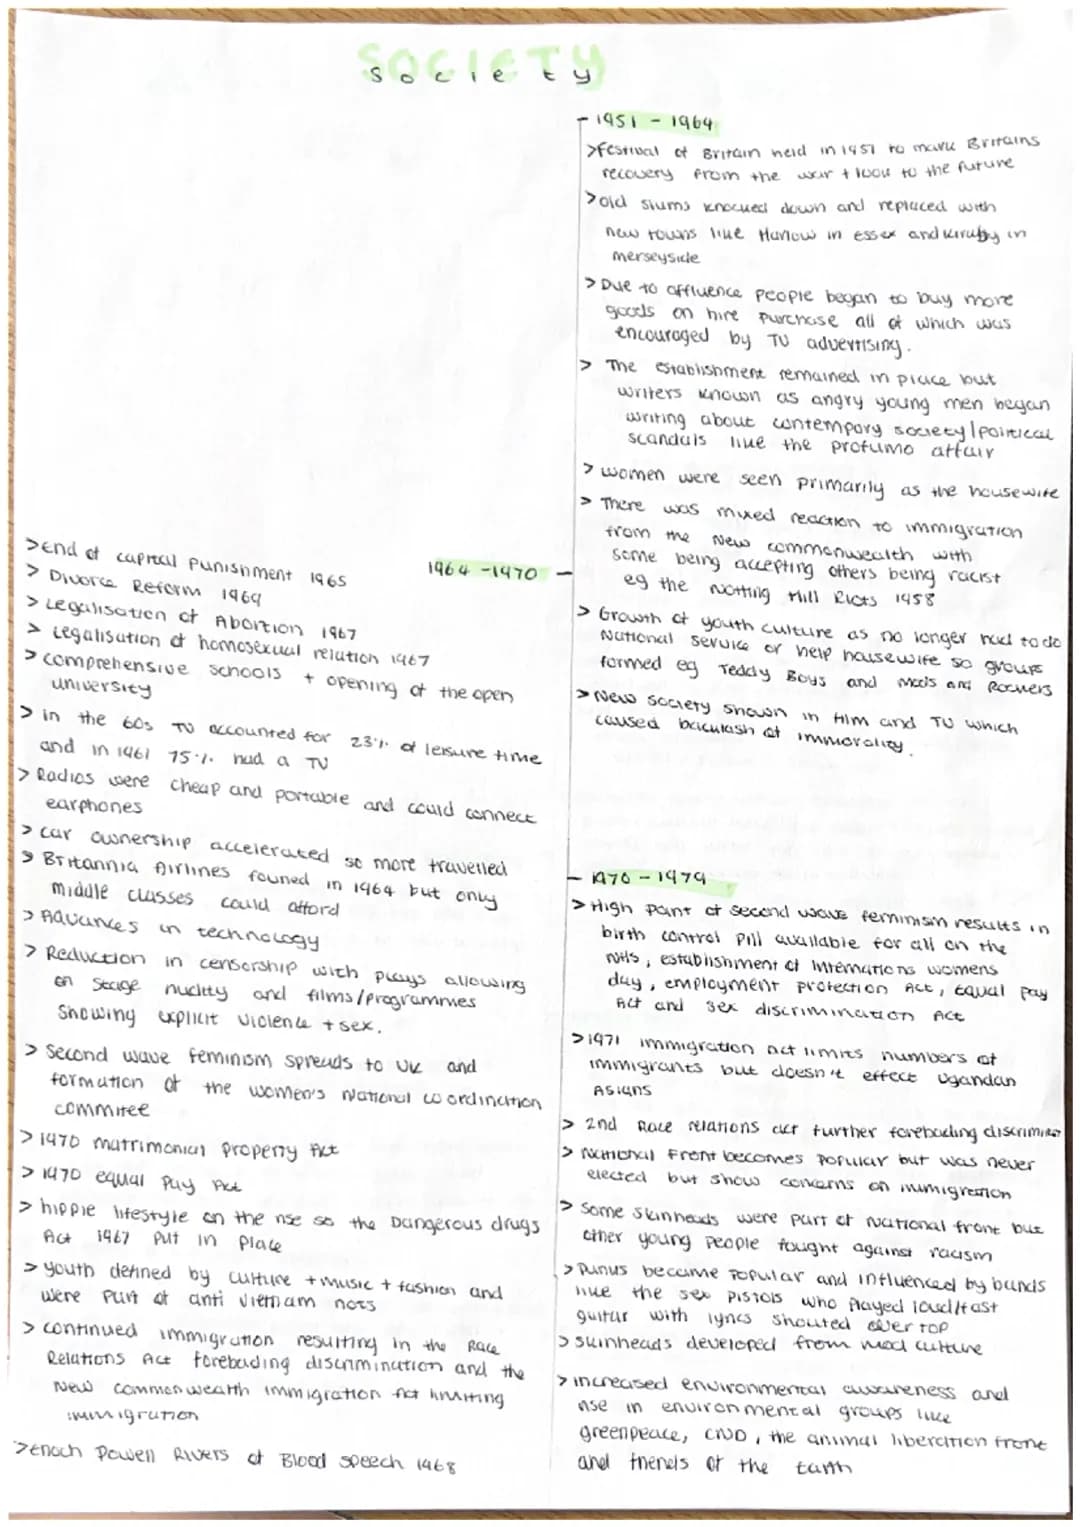 SOCIETY
society
1951 - 1964
>Festival of Britain held in 1951 to mark Britains
recovery from the war + look to the future
>old slums knocked down and replaced with
new towns like Harlow in essex and kirkby in
merseyside
>Due to affluence people began to buy more
goods on hire purchase all of which was
encouraged by TV advertising.
> The establishment remained in place but
writers known as angry young men began
writing about contempory society/political
scandals like the profumo affair
>women were seen primarily as the housewife
> There was mixed reaction to immigration
from the New commonwealth with
some being accepting others being racist
eg the Notting Hill Riots 1958
> Growth of youth culture as no longer had to do
National service or help housewife so groups
formed eg Teddy Boys and Mods and Rockers
>New society shown in film and TV which
caused backlash of immorality.
1964 -1970
>End of capital punishment 1965
> Divorce Reform 1969
>Legalisation of Abortion 1967
> Legalisation of homosexual relation 1967
>comprehensive schools + opening of the open
university
> in the 60s TV accounted for 23% of leisure time
and in 1961 75% had a TV
> Radios were cheap and portable and could connect
earphones
> car ownership accelerated so more travelled
> Britannia Airlines founed in 1964 but only
middle classes could afford
> Advances in technology
> Reduction in censorship with plays allowing
on stage nudity and films/programmes
showing explicit violence + sex.
> Second wave feminism spreads to UK and
formation of the women's National coordination
commitee
> 1970 matrimonial property Act
> 1970 equal Pay Act
> hippie lifestyle on the rise so the Dangerous drugs
Act 1967 put in place
> youth defined by culture + music + fashion and
were part of anti vietnam riots
> continued immigration resulting in the Race
Relations Act forebading discrimination and the
New commonwealth immigration Act limiting
immigration
>Enoch Powell Rivers of Blood speech 1968
1970 - 1979
> High point of second wave feminism results in
birth control pill available for all on the
NHS, establishment of internations womens
day, employment protection Act, Equal pay
Act and sex discrimination Act
>1971 immigration act limits numbers of
immigrants but doesn't effect Ugandan
Asians
> 2nd Race relations act further forebading
> National Front becomes popular but was never
elected but show concerns on immigration
> Some skinheads were part of National front but
other young people fought against racism
> Punks became popular and influenced by bands
like the sex pistols who played loud/fast
guitar with lyrics shouted over top
> skinheads developed from mod culture
> increased environmental awareness and
rise in environmental groups like
greenpeace, CND, the animal liberation front
and friends of the Earth